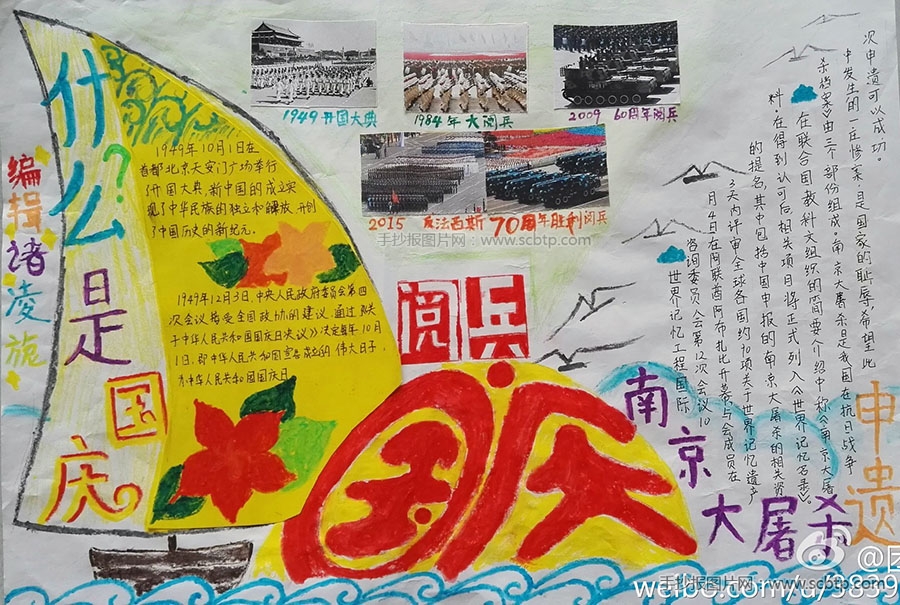 什么?是国庆
编辑诸凌旎
1949年10月1日在
首都北京天安门广场举行
开国大典,新中国的成立实
现了中华民族的独立和解放,开创
了中国历史的新纪元。
1949年12月3日,中央人民政府委员会第四
次会议接受全国政协的建议,通过《关
于中华人民共和国国庆日决议》决定每年10月
1日,即中华人民共和国宣告成立的伟大日子,
为中华人民共和国国庆日
1949开国大典
1984年大阅兵
2009 60周年阅兵
2015 反法西斯70周年胜利阅兵
手抄报图片网:www.scbtp.com
阅兵
国庆
世界记忆工程国际
咨询委员会第12次会议10
月4日在阿联酋阿布扎比开幕,与会成员在
3天内评审全球各国约90项关于世界记忆遗产
的提名,其中包括中国申报的南京大屠杀的相关资
料,在得到认可后相关项目将正式列入《世界记忆名录》。
在联合国教科文组织的简要介绍中称《南京大屠
杀档案》由三个部份组成,南京大屠杀是我国在抗日战争
中发生的一庄惨案,是国家的耻辱,希望此
次申遗可以成功。
南京大屠杀
申遗
手抄报图片网:www.scbtp.com
weibo.com/u/3859